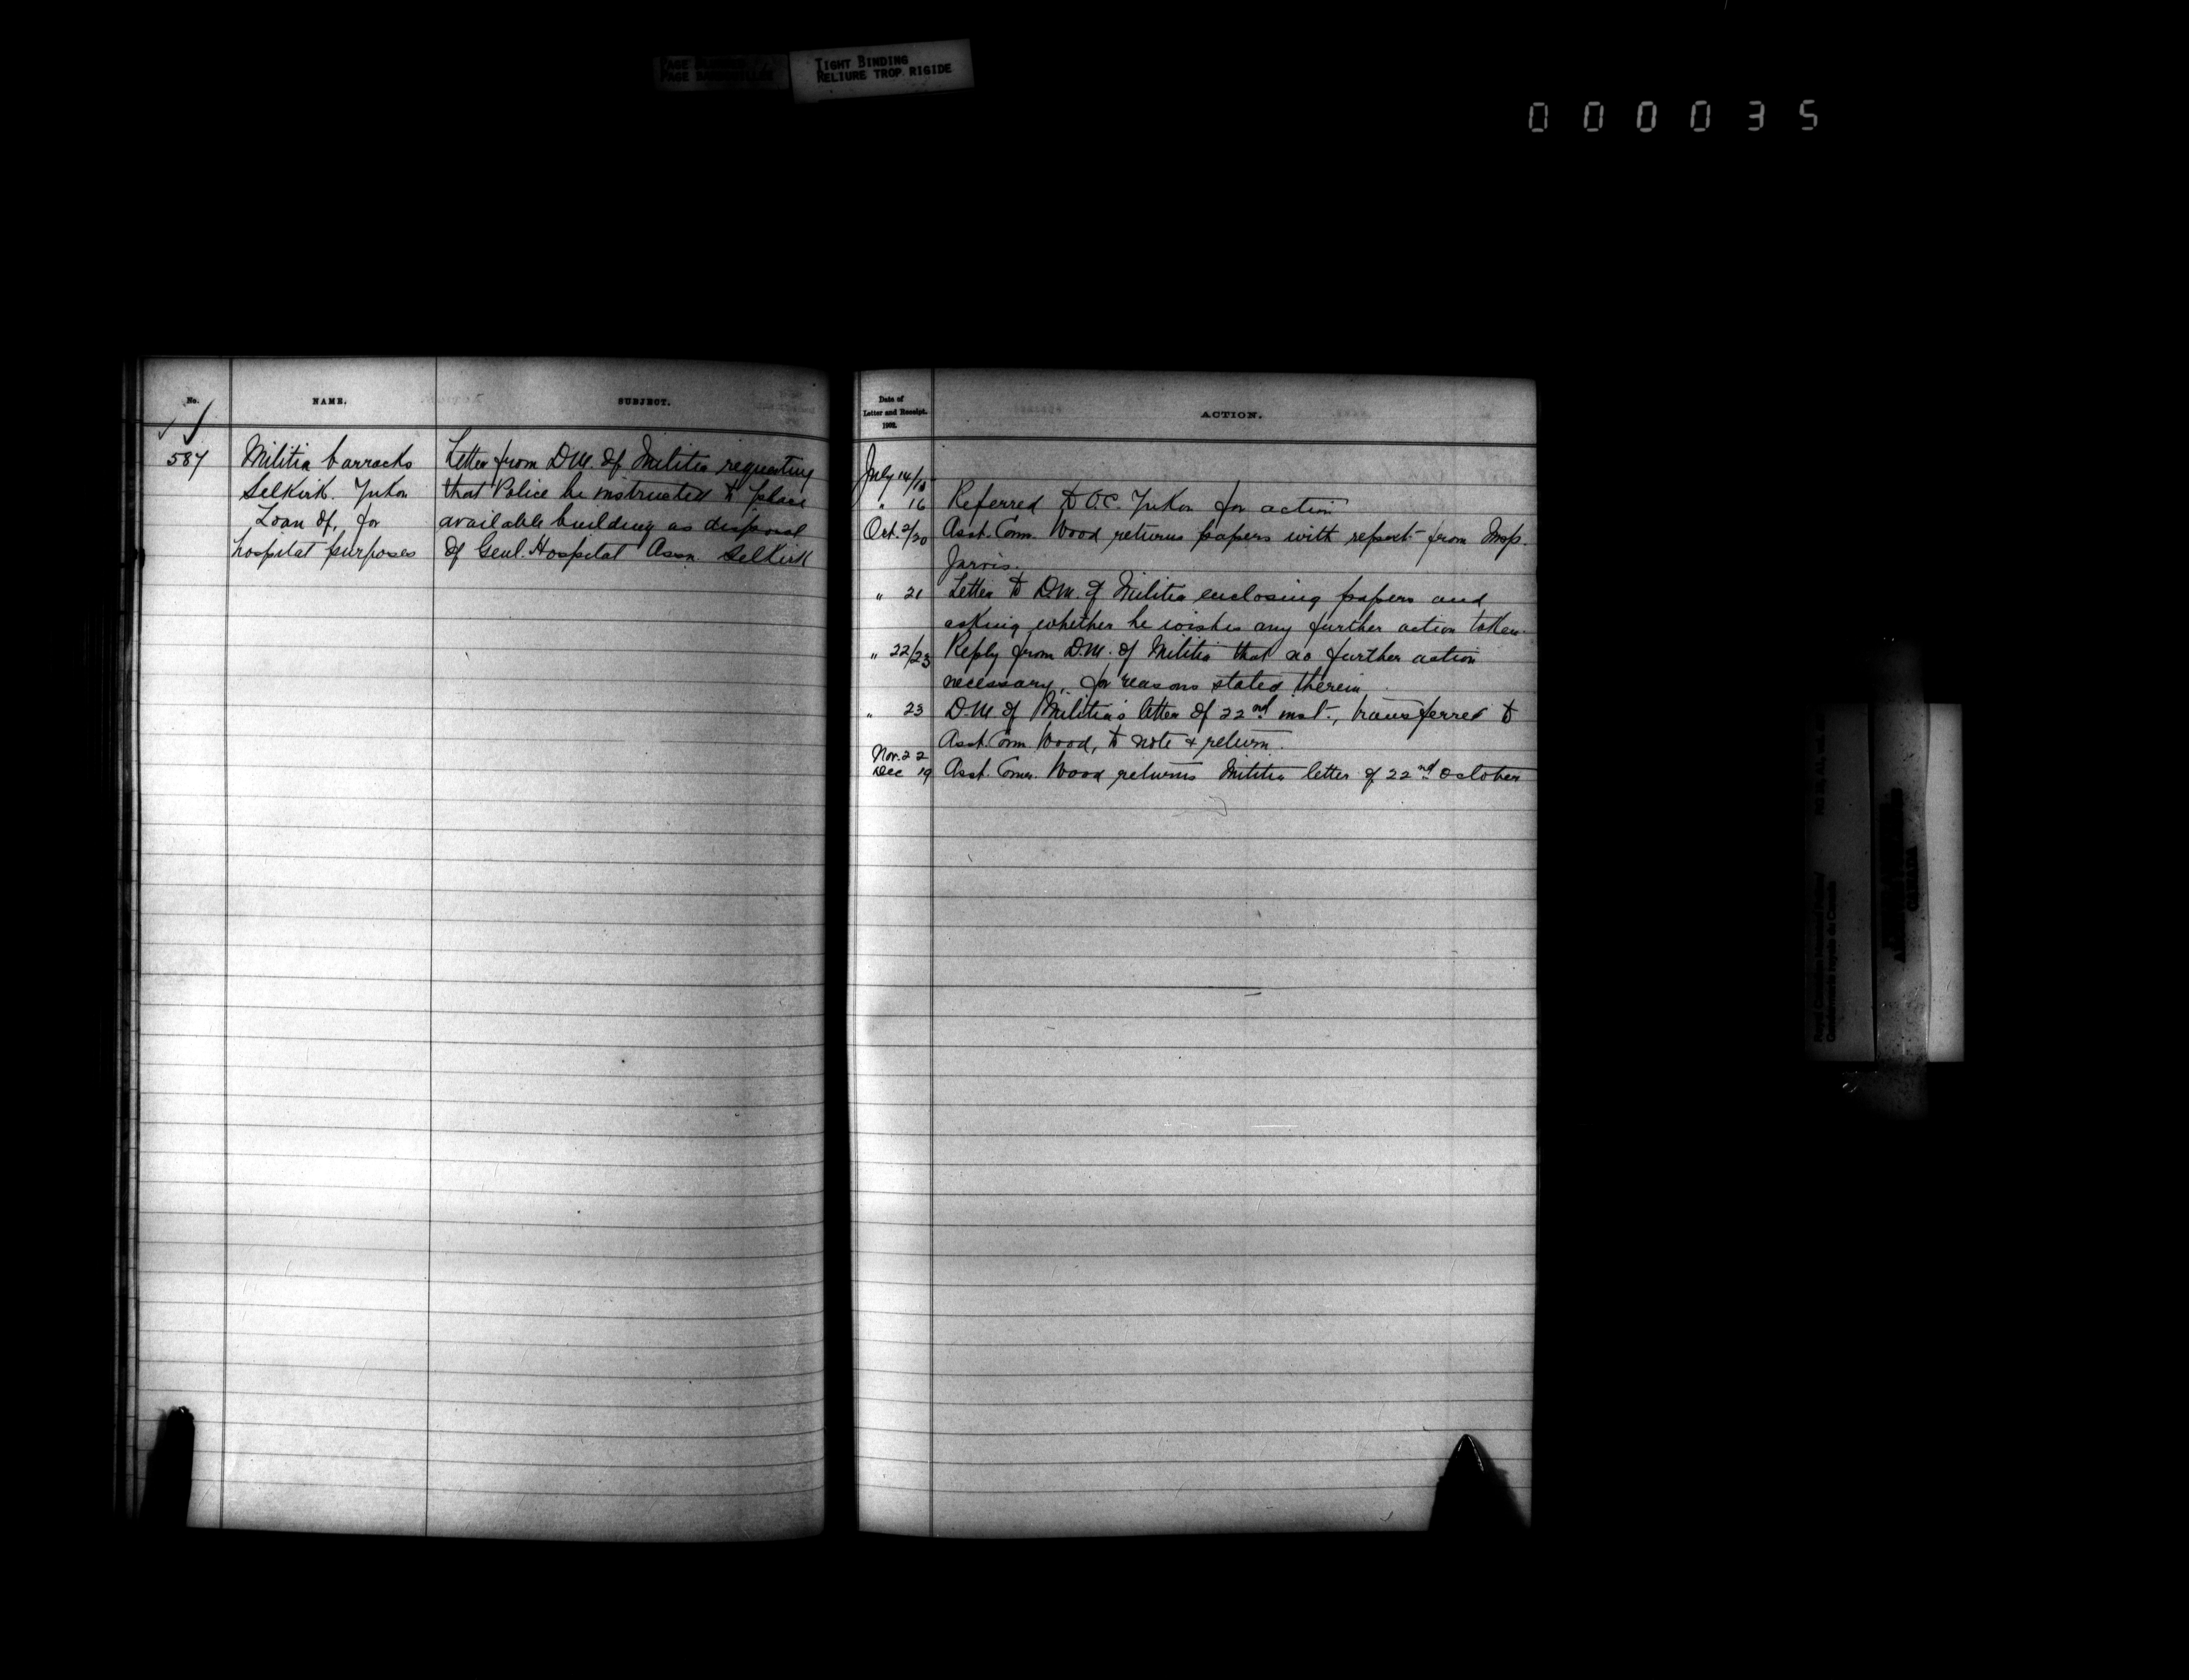 TIGHT BINDING
RELIURE TROP RIGIDE
000035
No.
NAME.
SUBJECT.
587
Militia barracks
Selkirk. Yukon
Loan of, for
hospital purposes
Letter from D.M. of Militia requesting
that Police be instructed to place
available building as disposal
of Genl. Hospital Assn. Selkirk
Date of
Letter and Receipt.
1902.
ACTION.
July 14/15
" 16 Referred to O.C. Yukon for action
Oct. 2/20 Asst. Comr. Wood returns papers with report from Insp.
Jarvis.
" 21 Letter to D.M. of Militia enclosing papers and
asking whether he wishes any further action taken.
" 22/23 Reply from D.M. of Militia that no further action
necessary, for reasons stated therein
" 23 D.M. of Militia's letter of 22nd inst., transferred to
Asst. Com Wood, to note & return.
Nov. 22
Dec 19 Asst. Comr. Wood returns Militia letter of 22nd October